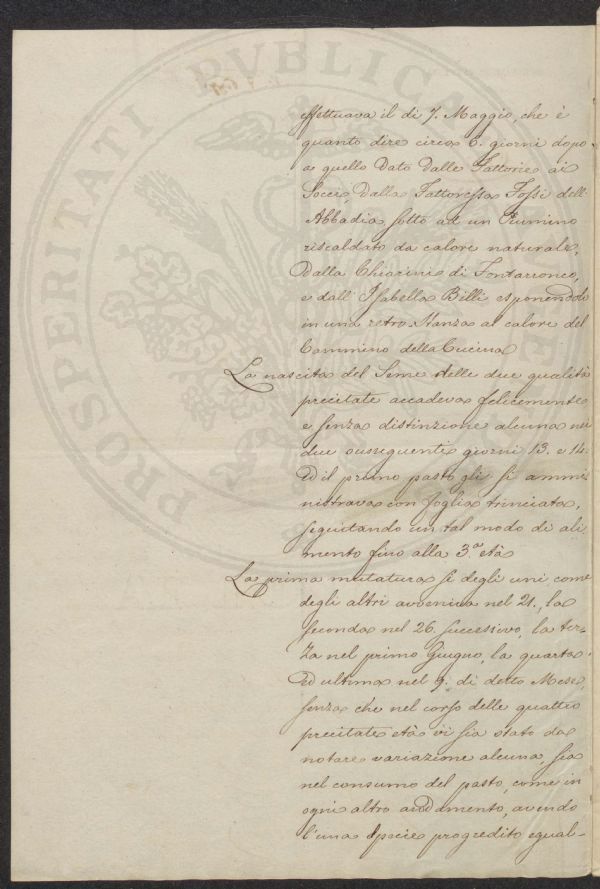 PROSPERITATI PVBLICAE
effettuava il dì 7. Maggio, che è
quanto dire circa 6. giorni dopo
a quello dato dalle Fattorie ai
Socci, dalla Fattoressa Fossi dell'
Abbadia sotto ad un Piumino
riscaldato da calore naturale,
dalla Chiarini di Fontarronco,
e dall' Isabella Billi esponendolo
in una retro Stanza al calore del
Cammino della Cucina
La nascita del Seme delle due qualità
precitate accadeva felicemente
e senza distinzione alcuna nei
due susseguenti giorni 13. e 14.
ed il primo pasto gli si ammi
nistrava con foglia trinciata,
seguitando un tal modo di ali
mento fino alla 3.a età
La prima mutatura sì degli uni come
degli altri avveniva nel 21., la
seconda nel 26. successivo, la ter-
za nel primo Giugno, la quarta
ed ultima nel 9. di detto Mese,
senza che nel corso delle quattro
precitate età vi sia stato da
notare variazione alcuna, sia
nel consumo del pasto, come in
ogni altro andamento, avendo
l'una specie progredito egual-